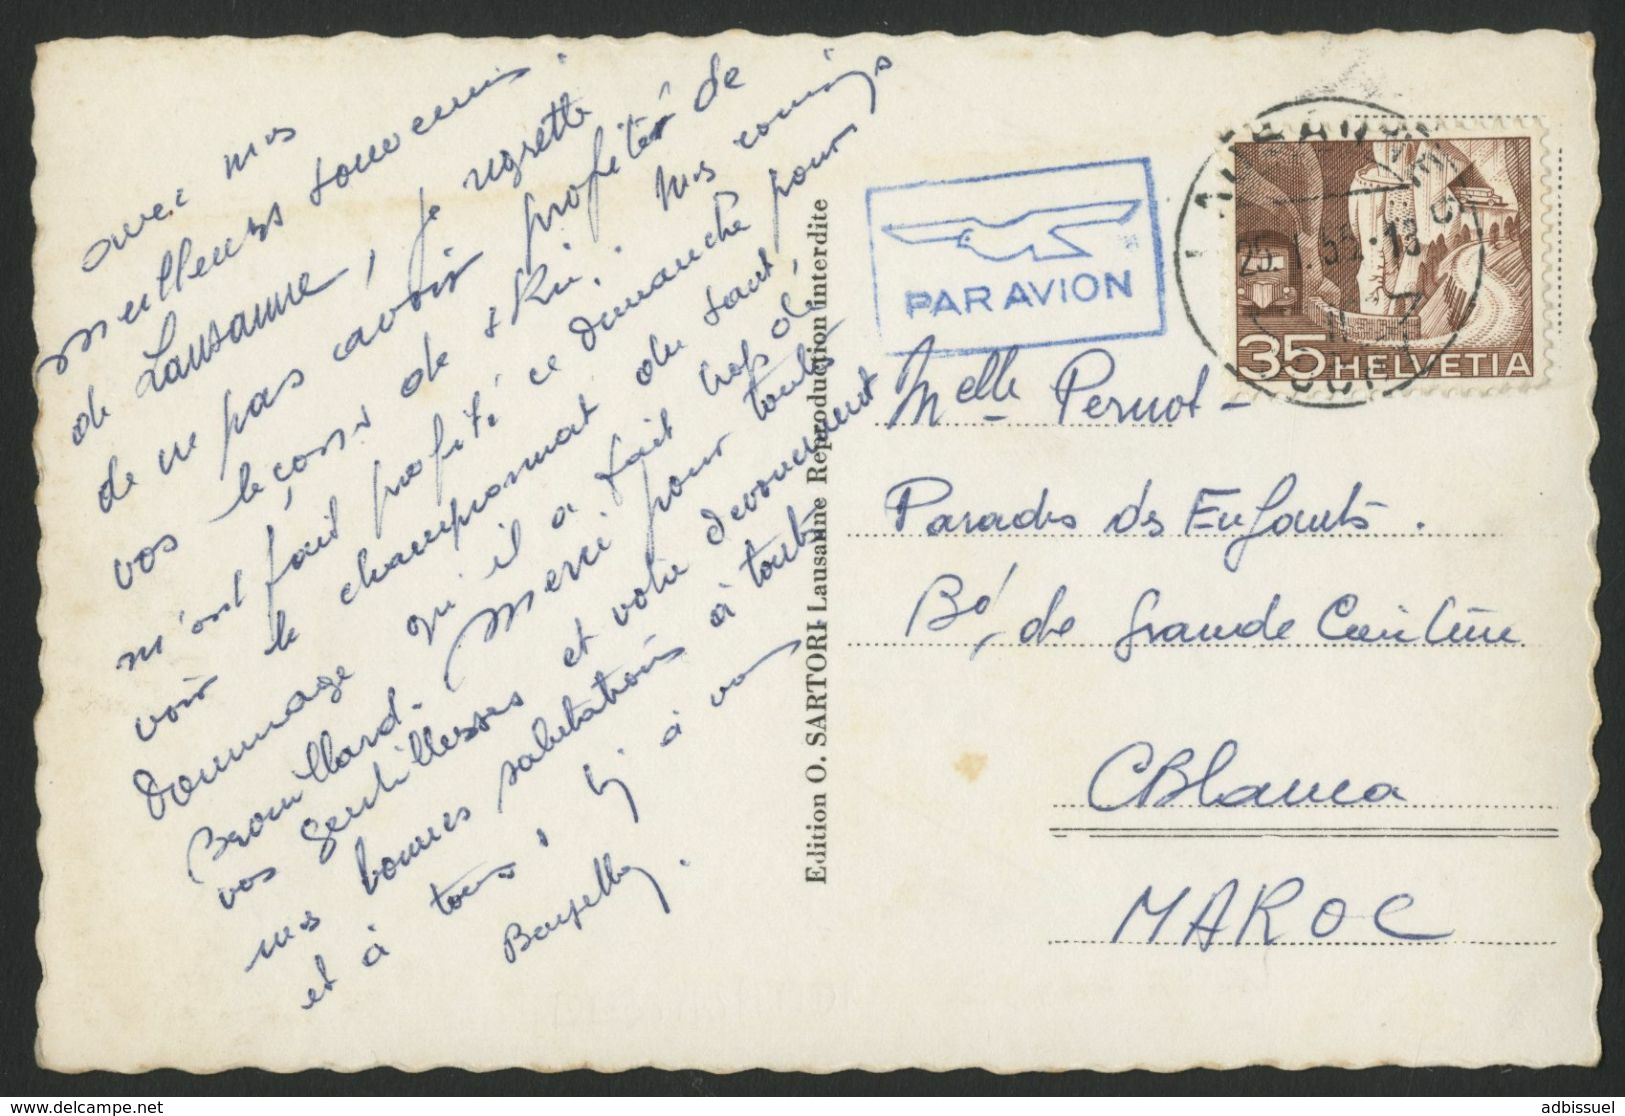 avec mes
meilleurs souvenirs.
de Lausanne, je regrette
de ne pas avoir profiter de
vos leçons de ski. Mes cousins
m'ont fait profité ce dimanche pour
voir le championnat du saut,
Dommage qu'il a fait trop de
Brouillard. Merci pour toutes
vos gentillesses et votre devouement
mes bonnes salutations à toutes
et à tous à vous
Edition O. SARTORI Lausanne Reproduction interdite
PAR AVION
LAUSANNE
25.1.55-13
35 HELVETIA
Melle Pernot -
Paradis des Enfants.
Bd de grande Ceinture
CBlanca
MAROC
adbissuel